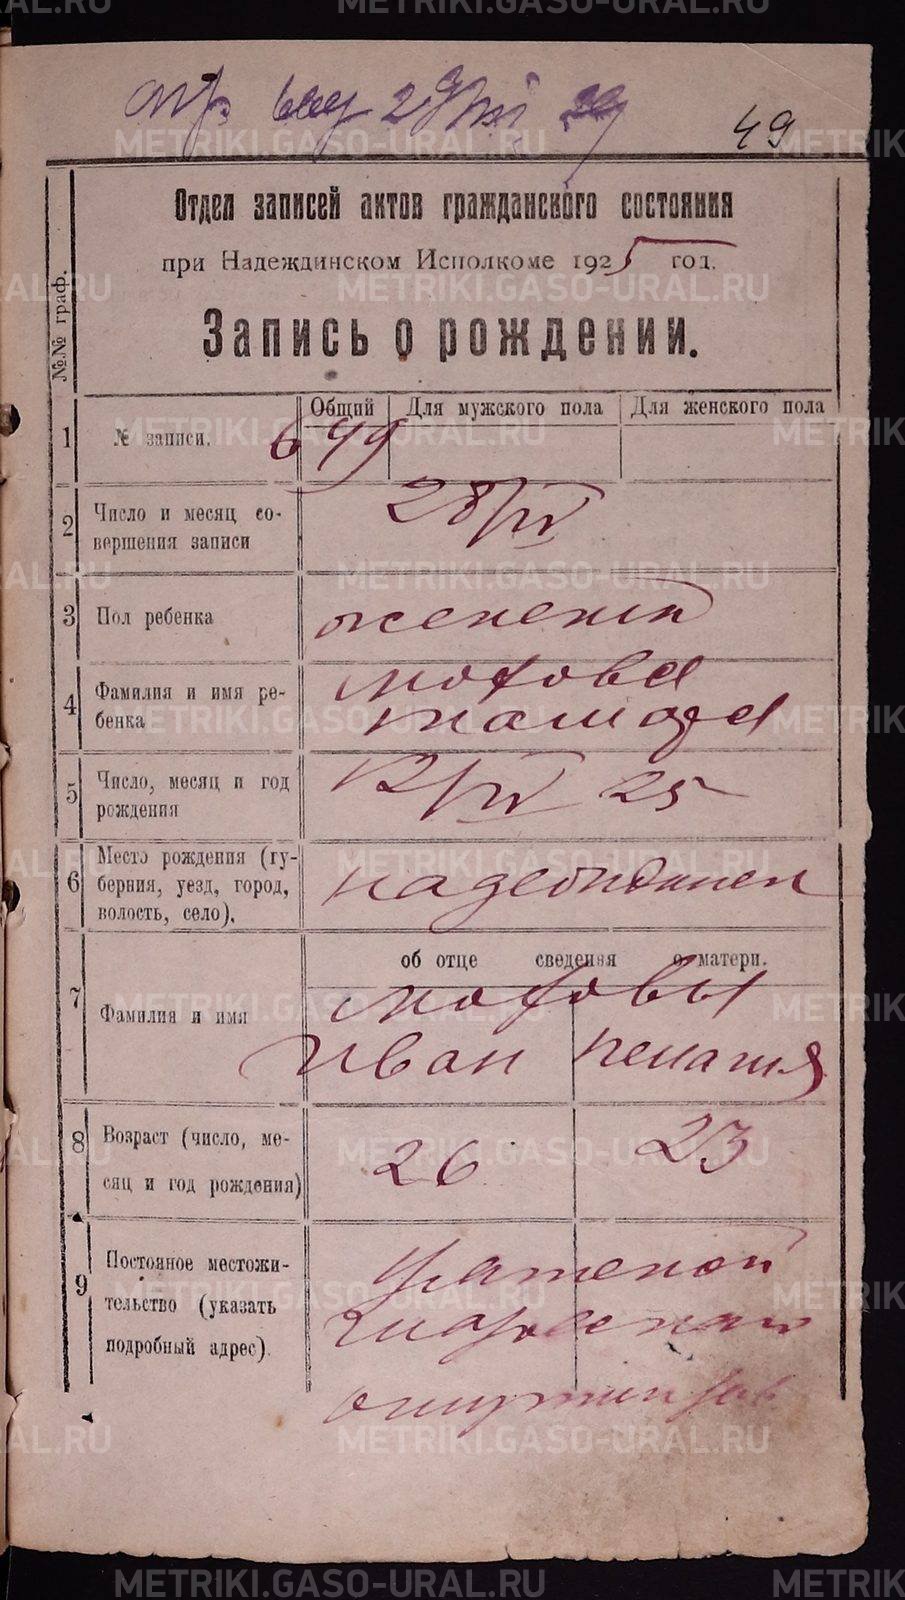 49
Отдел записей актов гражданского состояния
при Надеждинском Исполкоме 1925 год.
Запись о рождении.
№№ граф.
Общий Для мужского пола Для женского пола
1 № записи. 649
2 Число и месяц со-
вершения записи
28/IV
3 Пол ребенка
женский
4 Фамилия и имя ре-
бенка
Мохова
5 Число, месяц и год
рождения
12/IV 25
6 Место рождения (гу-
берния, уезд, город,
волость, село).
об отце сведения о матери.
7 Фамилия и имя
Моховы
Иван Пелагия
8 Возраст (число, ме-
сяц и год рождения)
26 23
9 Постояное местожи-
тельство (указать
подробный адрес).
METRIKI.GASO-URAL.RU